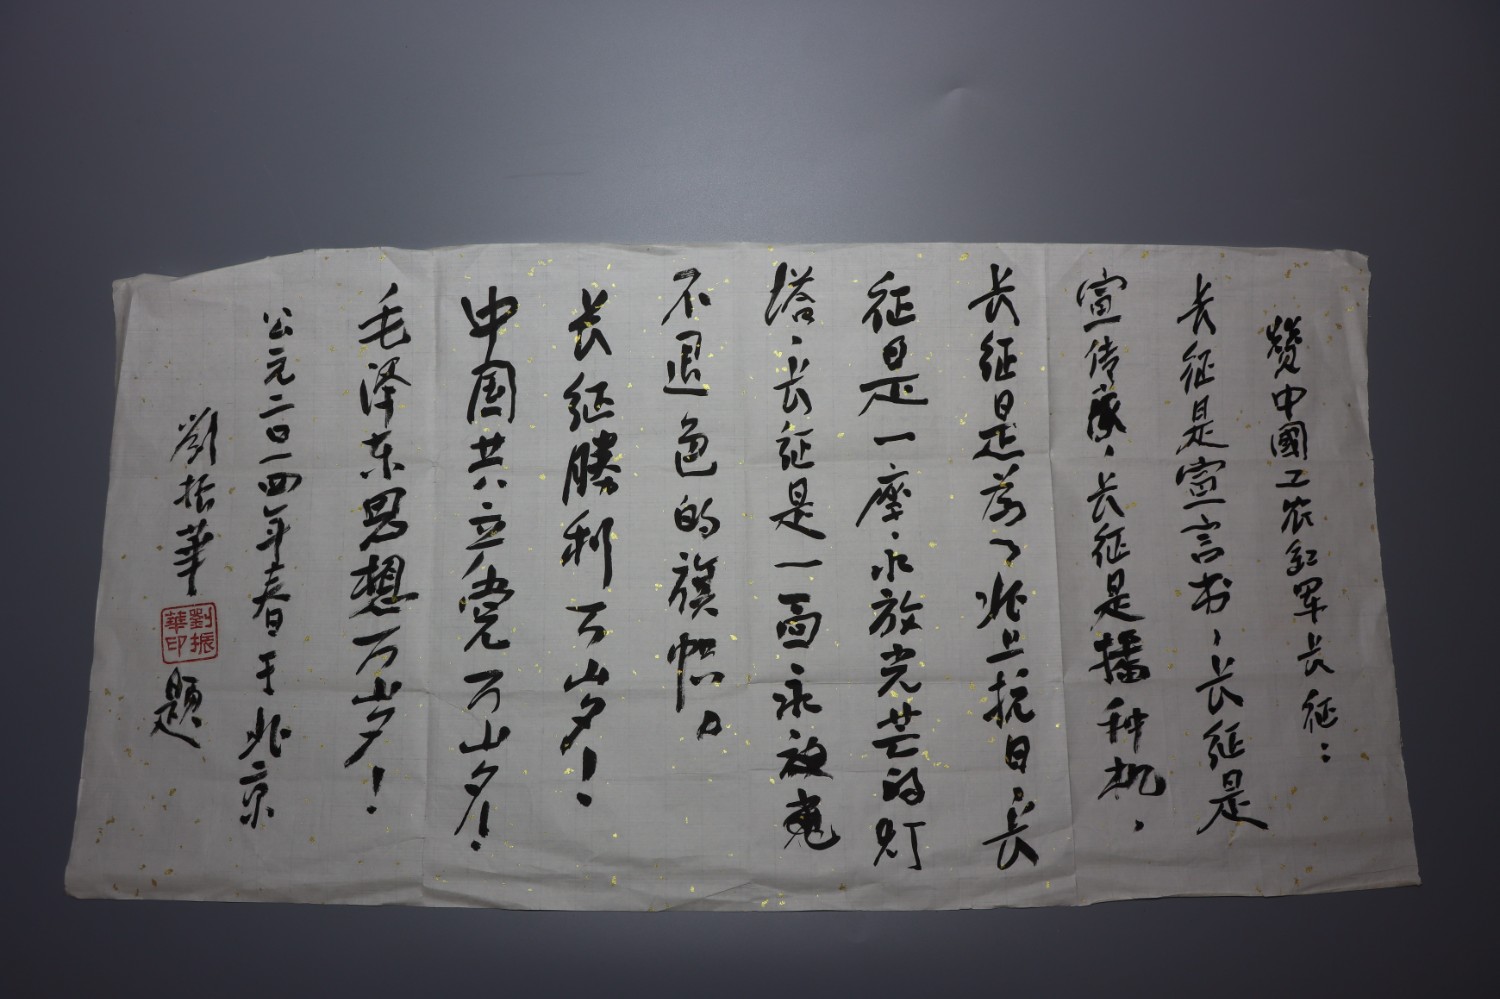 赞中國工农红军长征：
长征是宣言书、长征是
宣传队、长征是播种机、
长征是为了北上抗日、长
征是一座、永放光芒的灯
塔、长征是一面永放竟
不退色的旗帜。
长征勝利万岁！
中国共产党万岁！
毛泽东思想万岁！
公元二〇一四年春日于北京
劉振華
劉振華印
题